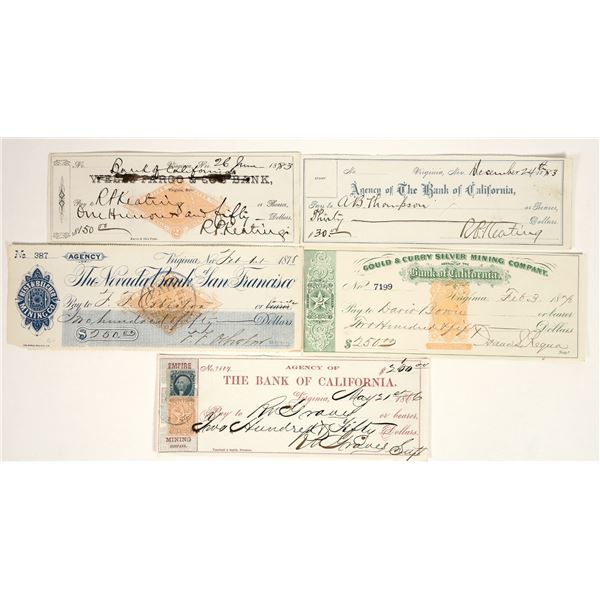 No. Virginia, Nev. 26 June 1883
Bank of California
WELLS FARGO & CO'S BANK,
Virginia, Nev.
Pay to R P Keating or Bearer,
One Hundred and fifty Dollars.
$150 00 R P Keating
No. Virginia, Nev. December 24th 1883
Agency of The Bank of California,
Pay to A B Thompson or Bearer,
Thirty Dollars.
$30.00 R P Keating
No. 387
AGENCY
Virginia Nev. Feb 1878
The Nevada Bank of San Francisco
Pay to F. F. or bearer
Two hundred fifty Dollars
$250.00 F. F.
BEST & BELCHER
MINING CO.
GOULD & CURRY SILVER MINING COMPANY.
Bank of California.
No. 7199 Virginia, Feb 3 1876
Pay to David Bowie or bearer
Two Hundred fifty Dollars
$250.00 Isaac L Requa
Supt
No. AGENCY OF $250 00
THE BANK OF CALIFORNIA.
Virginia, May 21st 1866
Pay to R N Graves or bearer,
Two Hundred & Fifty Dollars.
R N Graves Supt
EMPIRE
MINING
COMPANY.